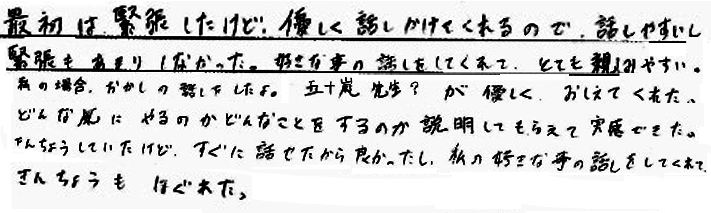 最初は緊張したけど、優しく話しかけてくれるので、話しやすいし
緊張もあまりしなかった。好きな事の話しをしてくれて、とても親しみやすい。
私の場合、おかしの話しをしたよ。五十嵐先生？が優しく、おしえてくれた。
どんな風にやるのかどんなことをするのか説明してもらえて実感できた。
きんちょうしていたけど、すぐに話せたから良かったし、私の好きな事の話しをしてくれて、
きんちょうもほぐれた。